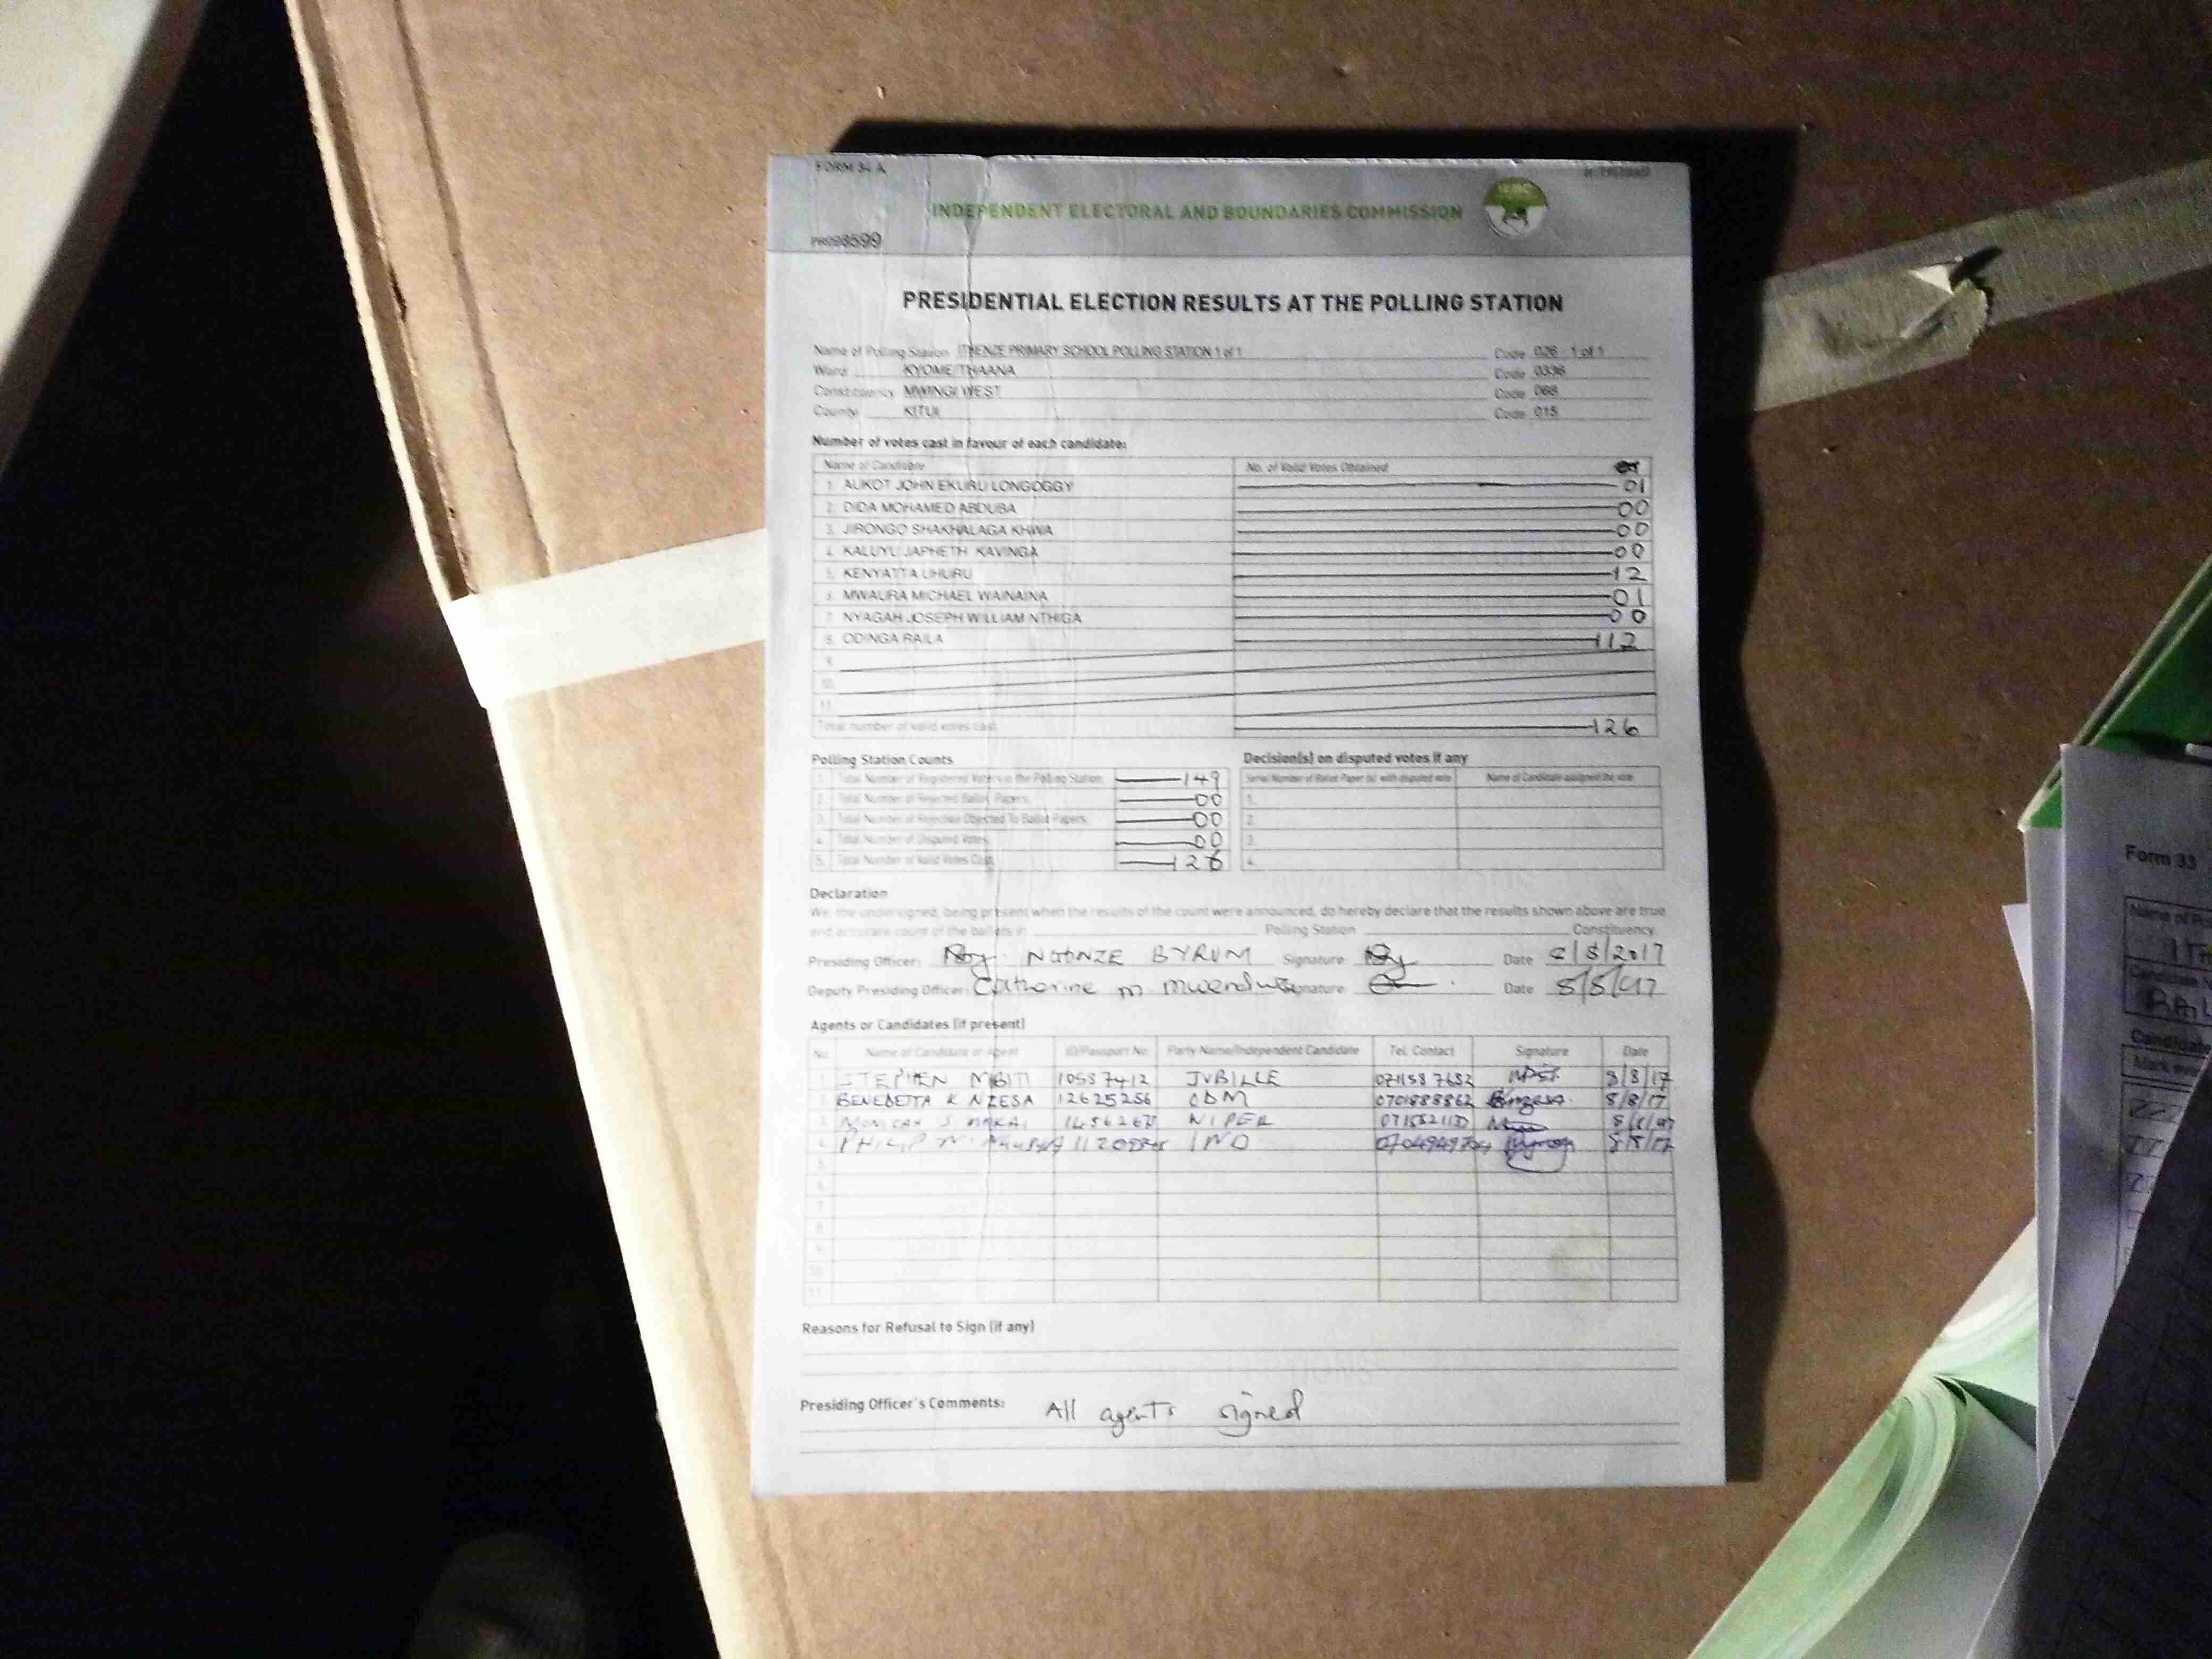 FORM 34 A
INDEPENDENT ELECTORAL AND BOUNDARIES COMMISSION
IEBC
PRESIDENTIAL ELECTION RESULTS AT THE POLLING STATION
Name of Polling Station ITHENZE PRIMARY SCHOOL POLLING STATION 1 of 1 Code 026 - 1 of 1
Ward KYOME/THAANA Code 0336
Constituency MWINGI WEST Code 068
County KITUI Code 015
Number of votes cast in favour of each candidate:
Name of Candidate No. of Valid Votes Obtained
1. AUKOT JOHN EKURU LONGOGGY 01
2. DIDA MOHAMED ABDUBA 00
3. JIRONGO SHAKHALAGA KHWA 00
4. KALUYU JAPHETH KAVINGA 00
5. KENYATTA UHURU 12
6. MWAURA MICHAEL WAINAINA 01
7. NYAGAH JOSEPH WILLIAM NTHIGA 00
8. ODINGA RAILA 112
9.
10.
11.
Total number of valid votes cast 126
Polling Station Counts
1. Total Number of Registered Voters in the Polling Station 149
2. Total Number of Rejected Ballot Papers 00
3. Total Number of Rejection Objected To Ballot Papers 00
4. Total Number of Disputed Votes 00
5. Total Number of Valid Votes Cast 126
Decision(s) on disputed votes if any
Serial Number of Ballot Paper (s) with disputed vote Name of Candidate assigned the vote
1.
2.
3.
4.
Declaration
We, the undersigned, being present when the results of the count were announced, do hereby declare that the results shown above are true
and accurate count of the ballots in Polling Station Constituency.
Presiding Officer: BYRUM Signature: Date 8/8/2017
Deputy Presiding Officer: Catherine m Signature: Date 8/8/17
Agents or Candidates (if present)
No Name of Candidate or Agent ID/Passport No. Party Name/Independent Candidate Tel. Contact Signature Date
1. STEPHEN MBITI 10587412 JUBILLE 8/8/17
2. BENEDETTA K NZESA 12625256 ODM 0701888862 8/8/17
3. WIPER
4. PHILIP IND 8/8/17
5.
6.
7.
8.
9.
10.
11.
Reasons for Refusal to Sign (if any)
Presiding Officer's Comments: All agents signed
Form 33
Name of
Candidate
Mark